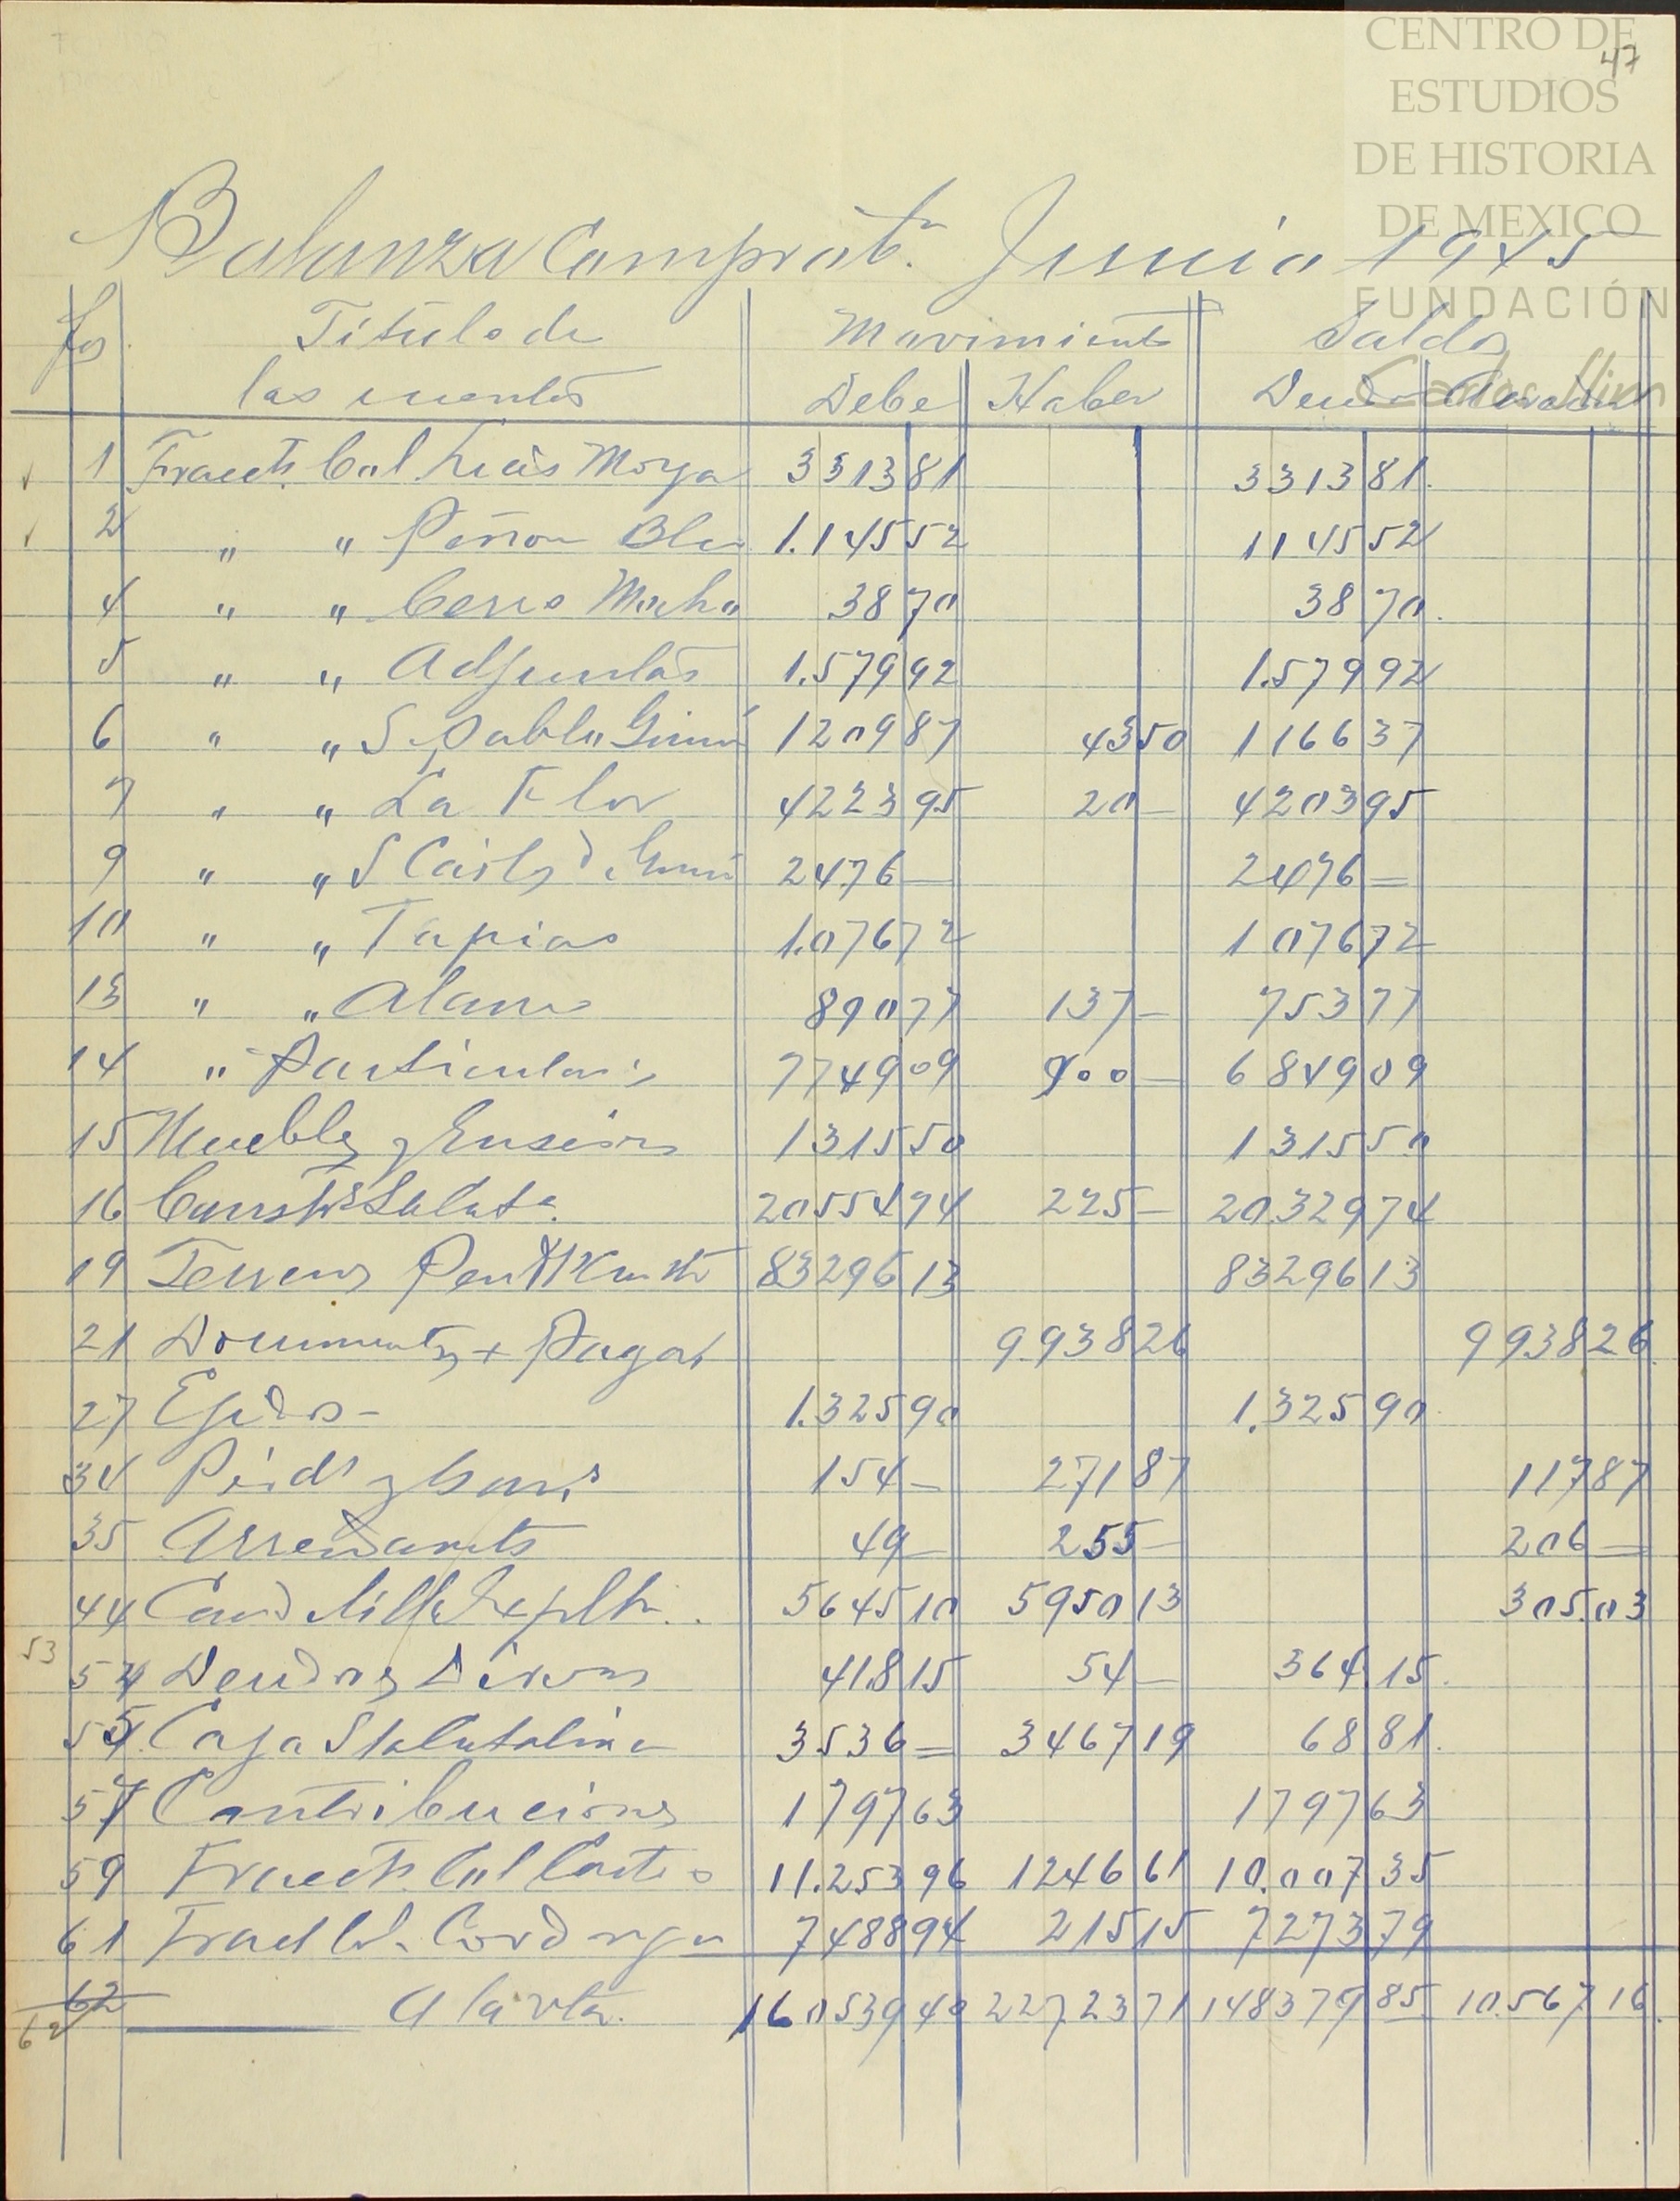 CENTRO DE
47
ESTUDIOS
DE HISTORIA
DE MEXICO
FUNDACIÓN
Carlos Slim
Balanza Comprobn. Junio 1945
fos Titulo de Movimiento Saldos
las cuentas Debe Haber Deudor Acreedor
1 Fracto. Col Luis Moya 3313 81 3313 81.
2 " " Peñon Blco 1.145 52 1145 52
4 " " Cerro Mocho 38 70 38 70.
5 " " Adjuntas 1.579 92 1.579 92
6 " " S. Pablo 1209 87 43 50 1166 37
7 " " La Flor 4223 95 20 — 4203 95
9 " " S Carlos d 2476 — 2476 =
10 " " Tapias 1.076 72 1 076 72
13 " " Alamo 890 77 137 — 753 77
14 " Particulares 7749 09 900 — 6849 09
15 Muebles y Enseres 1315 50 1315 50
16 20554 74 225 — 20.329 74
19 Terrenos 83296 13 83296 13
21 Documentos x Pagar 9.938 26 9938 26.
27 Ejidos - 1.325 90 1.325 90
34 Perds y Gans 154 — 271 87 117 87
35 Arrendamts 49 — 255 — 206 —
44 Candelilla Expltn. 5645 10 5950 13 305.03
53 54 Deudores Divrsos 418 15 54 — 364 15.
55 Caja Sta Catalina 3536 = 3467 19 68 81.
57 Contribuciones 1797 63 1797 63
59 Fracto. Col Castro 11.253 96 1246 61 10.007 35
61 Fracto Col. 7488 94 215 15 7273 79
62 A la vta. 160539 40 22723 71 148379 85. 10.567 16.
62